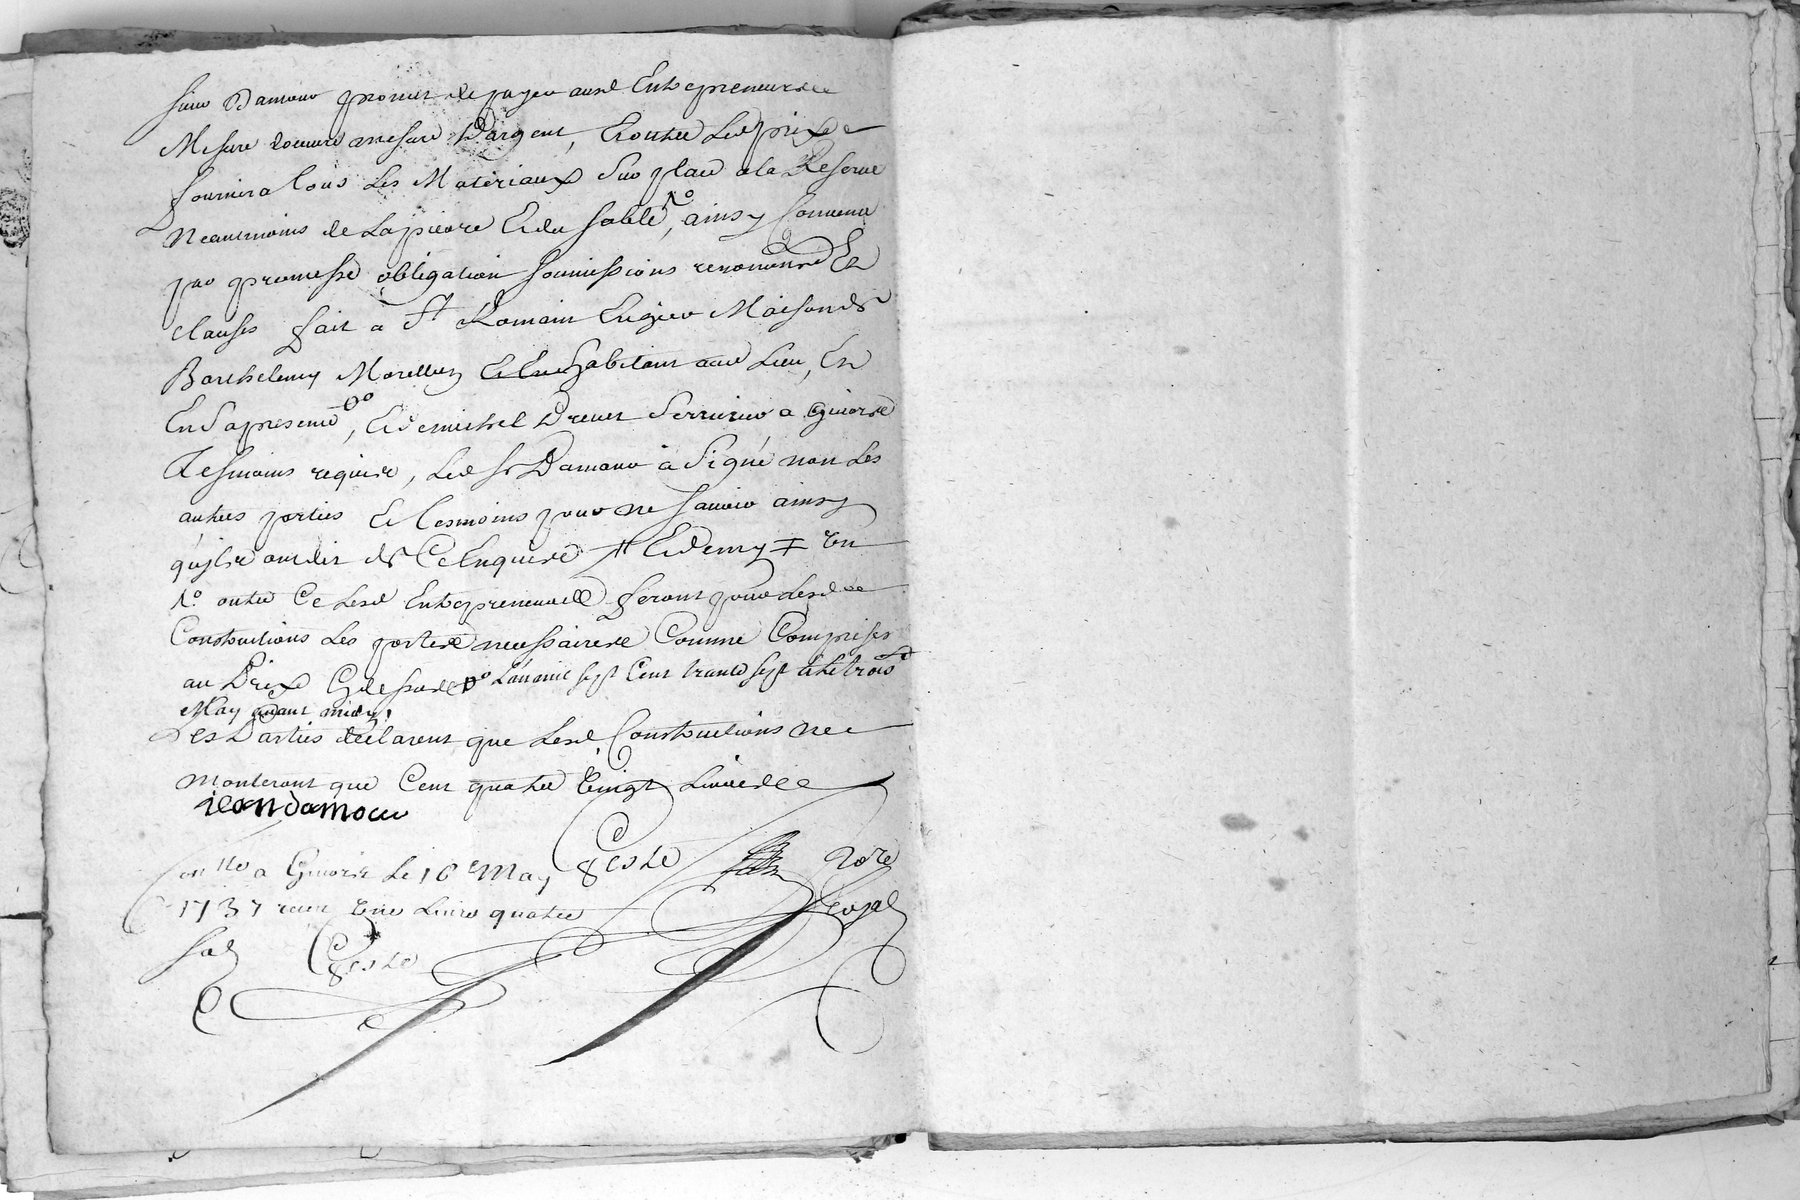 sieur Damour promet de payer ausd Entrepreneurs
Mesure doeuvre a mesure D'argent, Et outre Led prix
fournira tous Les Materiaux Sur place a la Reserve
Neantmoins de La pierre Et du sable 1o, ainsy Convenu
par promesse obligation soumissions renoncions Et
clauses fait a St Romain En gier Maison de
Barthelemy Morellon habitant aud Lieu, Et
En Sa presence, Et de michel Drevet Serrurier a givors
Tesmoins requis, Led Sr Damour à Signé non Les
autres parties Et tesmoins pour ne sauoir ainsy
qu'ils ont dit de Ce Enquis Et demy Un
1o outre Ce Lesd Entrepreneurs feront pour lesd
Constructions Les portes necessaires Comme Comprises
au Prix Cy dessus L'an mil sept Cent trante sept Et Le trois
May avant midy.
Les Parties declarent que Lesd Constructions ne
monteront que Cent quatre Vingt Livres
jean damour
Conllé a Givors Le 16 May Geste Nore
1737 receu Une Livre quatre Royal
sols Geste